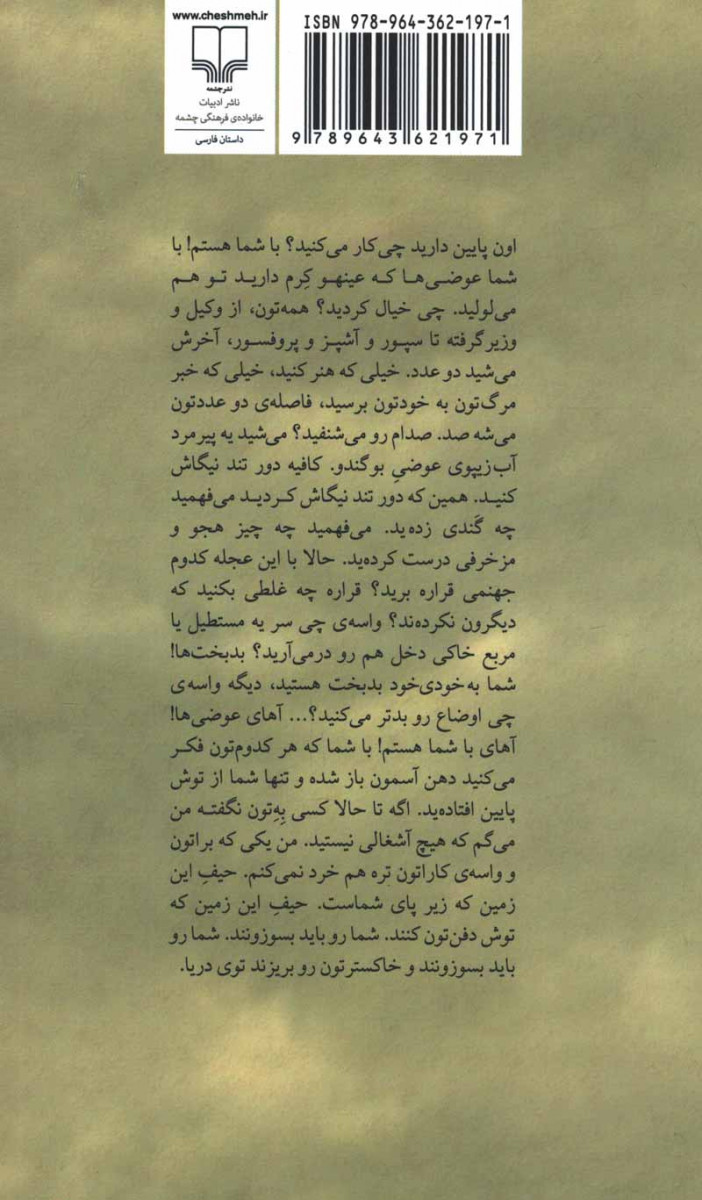 www.cheshmeh.ir
نشرچشمه
ناشر ادبیات
خانواده‌ی فرهنگی چشمه
داستان فارسی
ISBN 978-964-362-197-1
9 789643 621971
اون پایین دارید چی‌کار می‌کنید؟ با شما هستم! با
شما عوضی‌ها که عینهو کِرم دارید تو هم
می‌لولید. چی خیال کردید؟ همه‌تون، از وکیل و
وزیر گرفته تا سپور و آشپز و پروفسور، آخرش
می‌شید دو عدد. خیلی که هنر کنید، خیلی که خبر
مرگ‌تون به خودتون برسید، فاصله‌ی دو عددتون
می‌شه صد. صدام رو می‌شنفید؟ می‌شید یه پیرمرد
آب‌زیپوی عوضیِ بوگندو. کافیه دور تند نیگاش
کنید. همین که دور تند نیگاش کردید می‌فهمید
چه گَندی زده‌ید. می‌فهمید چه چیز هجو و
مزخرفی درست کرده‌ید. حالا با این عجله کدوم
جهنمی قراره برید؟ قراره چه غلطی بکنید که
دیگرون نکرده‌ند؟ واسه‌ی چی سر یه مستطیل یا
مربع خاکی دخل هم رو درمی‌آرید؟ بدبخت‌ها!
شما به‌خودی‌خود بدبخت هستید، دیگه واسه‌ی
چی اوضاع رو بدتر می‌کنید؟... آهای عوضی‌ها!
آهای با شما هستم! با شما که هر کدوم‌تون فکر
می‌کنید دهن آسمون باز شده و تنها شما از توش
پایین افتاده‌ید. اگه تا حالا کسی بِه‌ِتون نگفته من
می‌گم که هیچ آشغالی نیستید. من یکی که براتون
و واسه‌ی کاراتون تره هم خرد نمی‌کنم. حیفِ این
زمین که زیر پای شماست. حیفِ این زمین که
توش دفن‌تون کنند. شما رو باید بسوزونند. شما رو
باید بسوزونند و خاکسترتون رو بریزند توی دریا.